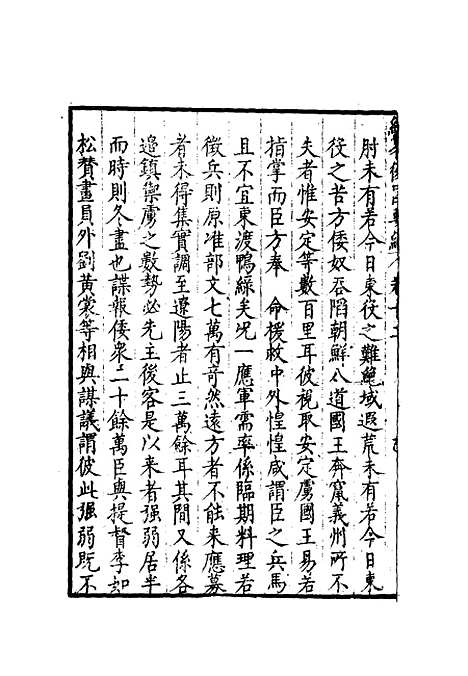 經畧復國要編 卷十二
肘未有若今日東役之難絕域遐荒未有若今日東
役之苦方倭奴吞䧟朝鮮八道國王奔竄義州所不
失者惟安定等數百里耳彼視取安定虜國王易若
指掌而臣方奉 命援救中外惶惶咸謂臣之兵馬
且不宜東渡鴨綠矣况一應軍需率係臨期料理若
徵兵則原准部文七萬有奇然遠方者不能来應募
者未得集實調至遼陽者止三萬餘耳其間又係各
邉鎮禦虜之數勢必先王後客是以来者强弱居半
而時則冬盡也諜報倭衆二十餘萬臣與提督李如
松賛畫員外劉黃裳等相與謀議謂彼此强弱既不